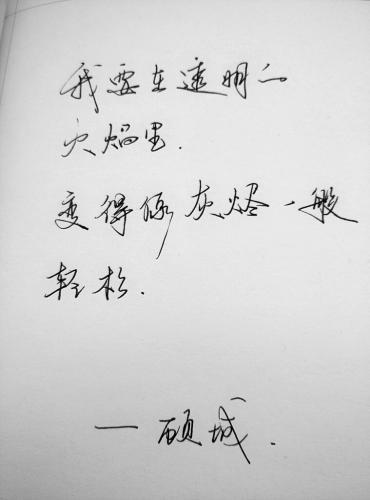 我要在透明的
火焰里.
变得像灰烬一般
轻松.
— 顾城.